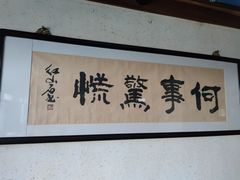 何事驚慌